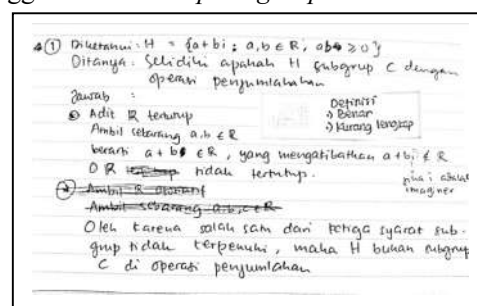 1 Diketahui : H = {a+bi ; a,b ∈ R, ab ≥ 0}
Ditanya : Selidiki apakah H subgrup C dengan
operasi penjumlahan
Jawab :
Adit R tertutup
Ambil sebarang a,b ∈ R
berarti a + b ∈ R, yang mengakibatkan a+bi ∉ R
Definisi
Benar
Kurang lengkap
∴ R tidak tertutup.
jika i adalah
imaginer
Ambil R asosiatif
Ambil sebarang a,b,c ∈ R
Oleh karena salah satu dari ketiga syarat sub-
grup tidak terpenuhi, maka H bukan subgrup
C di operasi penjumlahan